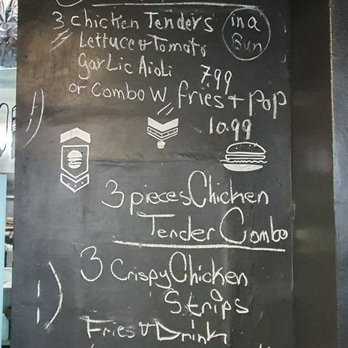 3 chicken Tenders in a Bun
Lettuce & Tomato
garLic Aioli 7.99
or Combo W/ fries + pop
10.99
3 pieces Chicken
Tender Combo
3 Crispy Chicken
Strips
Fries & Drink